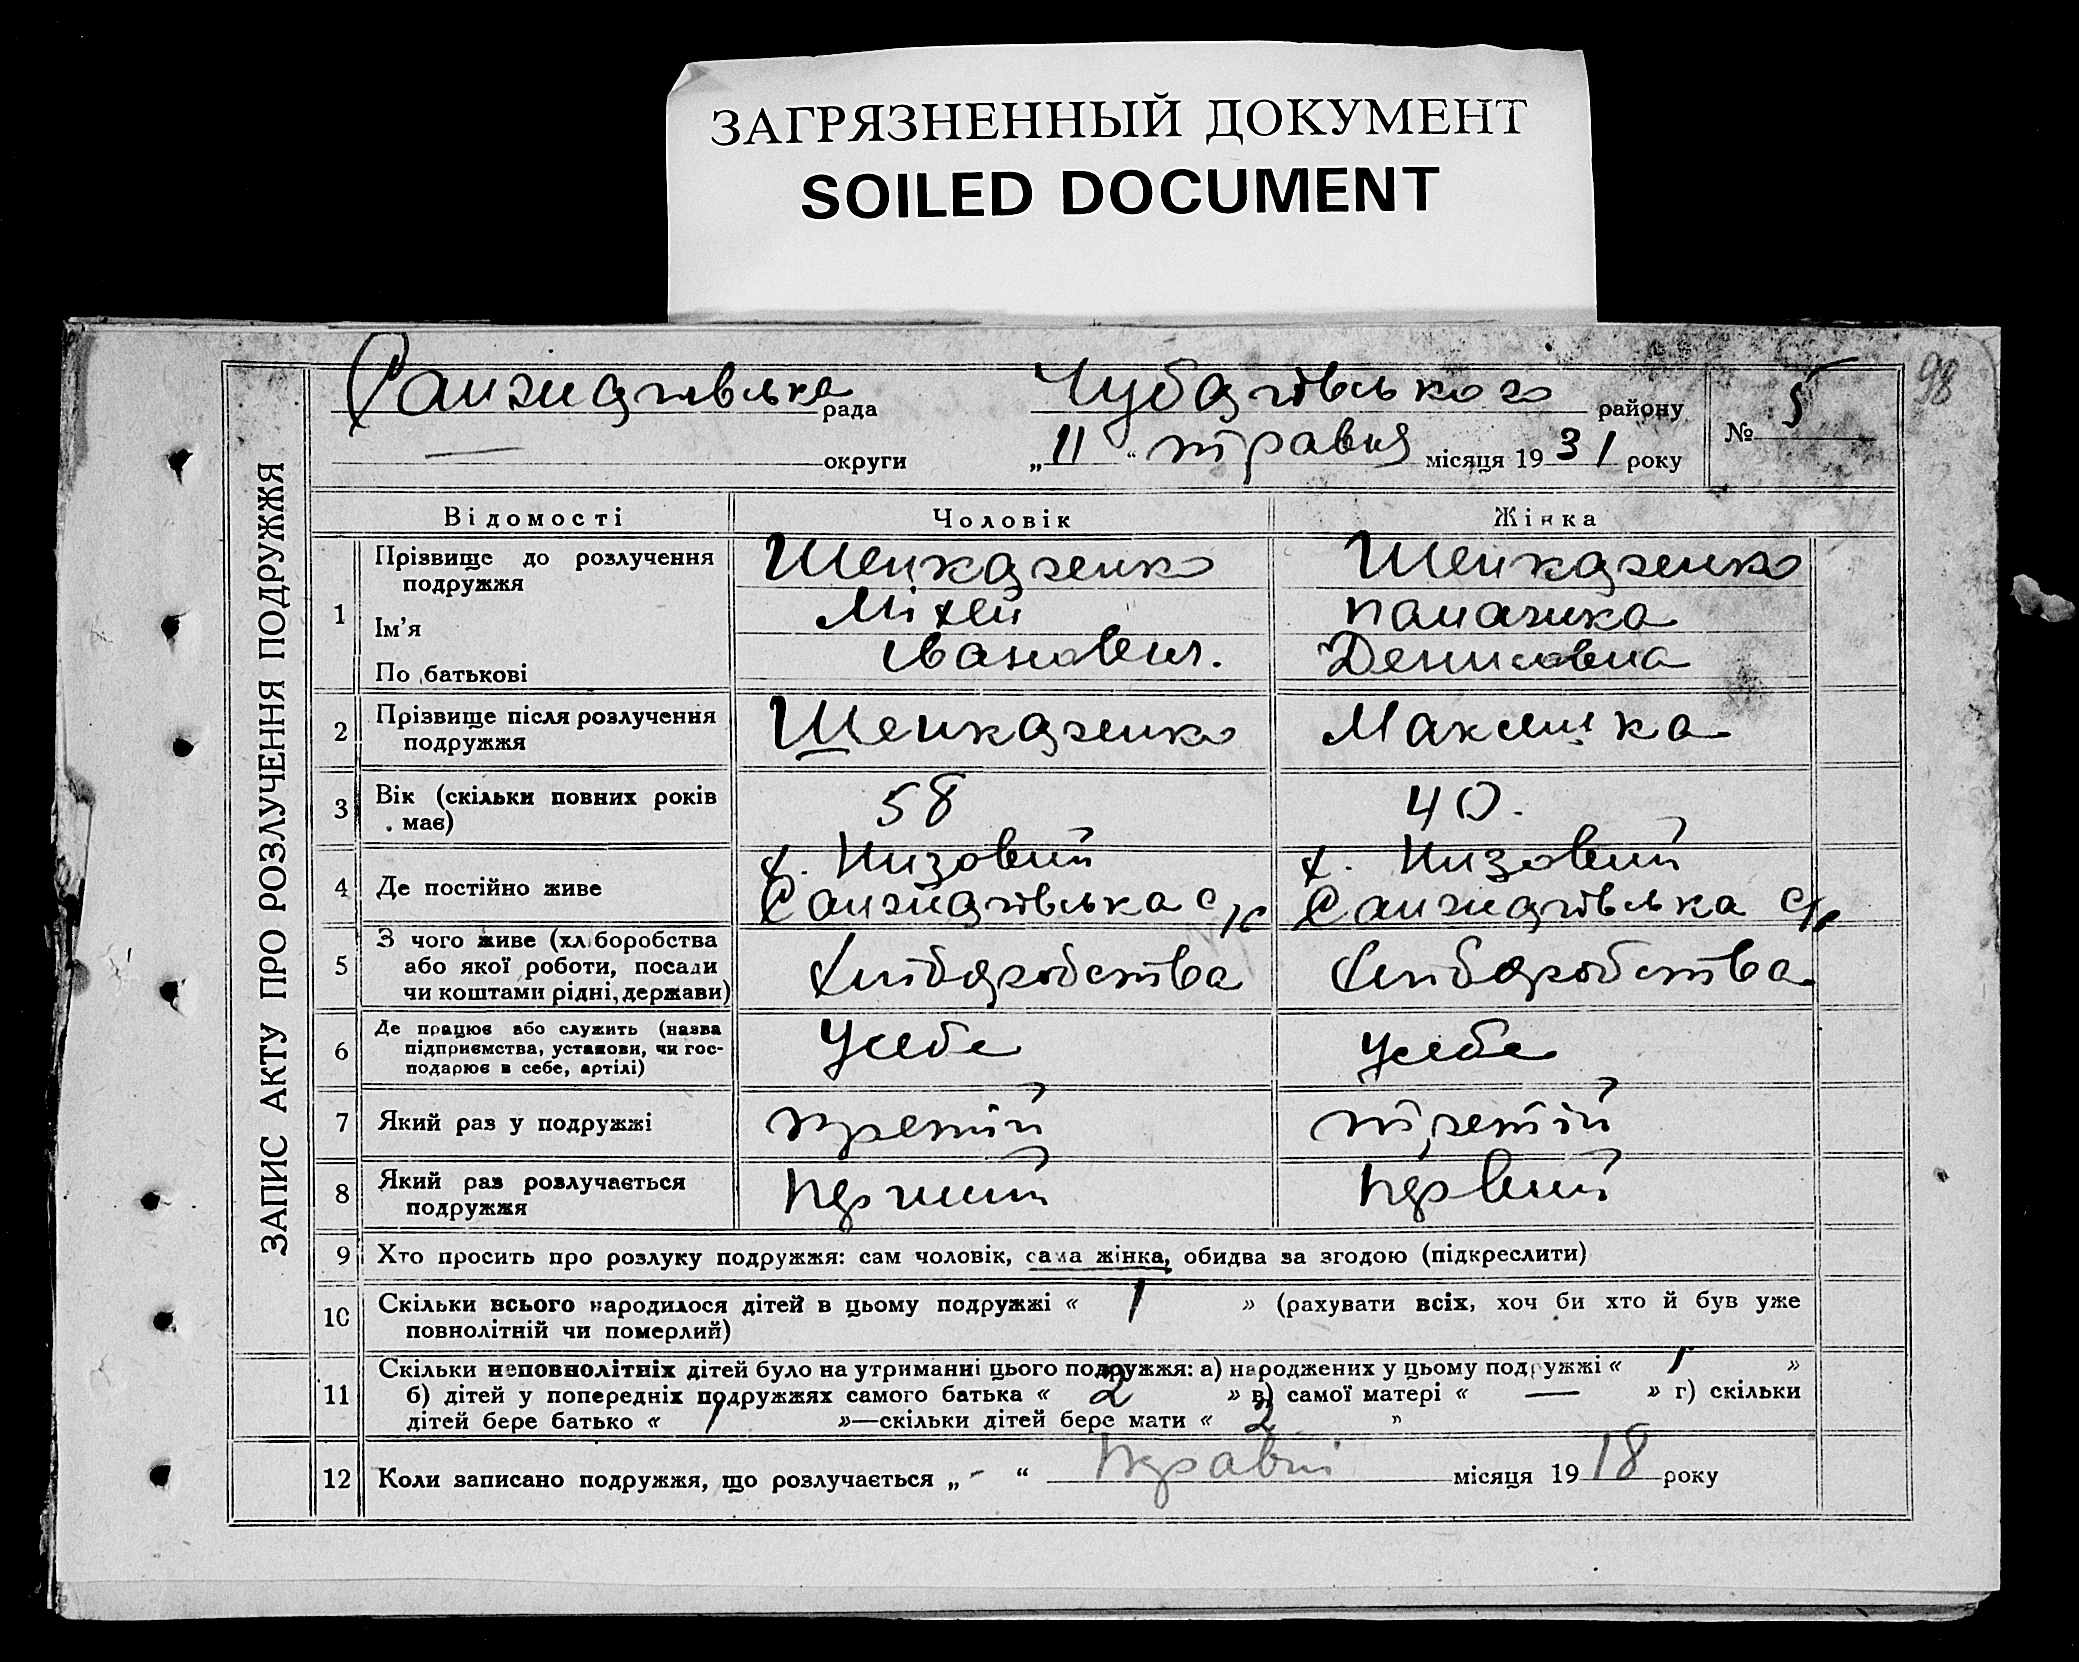 ЗАГРЯЗНЕННЫЙ ДОКУМЕНТ
SOILED DOCUMENT
98
ЗАПИС АКТУ ПРО РОЗЛУЧЕННЯ ПОДРУЖЖЯ
рада Чубарівського району № 5
— округи „11“ травня місяця 1931 року
Відомості Чоловік Жінка
1 Прізвище до розлучення подружжя
Ім'я Міхей
По батькові Іванович. Денисовна
2 Прізвище після розлучення подружжя
3 Вік (скільки повних років має) 58 40.
4 Де постійно живе х. Низовий х. Низовий
5 З чого живе (хліборобства
або якої роботи, посади
чи коштами рідні, держави) Хліборобства Хліборобства
6 Де працює або служить (назва
підприємства, установи, чи гос-
подарює в себе, артілі) Усебе Усебе
7 Який раз у подружжі третій третій
8 Який раз розлучається
подружжя Перший Первий
9 Хто просить про розлуку подружжя: сам чоловік, сама жінка, обидва за згодою (підкреслити)
10 Скільки всього народилося дітей в цьому подружжі « 1 » (рахувати всіх, хоч би хто й був уже
повнолітній чи померлий)
11 Скільки неповнолітніх дітей було на утриманні цього подружжя: а) народжених у цьому подружжі « 1 »
б) дітей у попередніх подружжях самого батька « 2 » в) самої матері « — » г) скільки
дітей бере батько « 1 »—скільки дітей бере мати « 2 »
12 Коли записано подружжя, що розлучається „ - “ місяця 1918 року